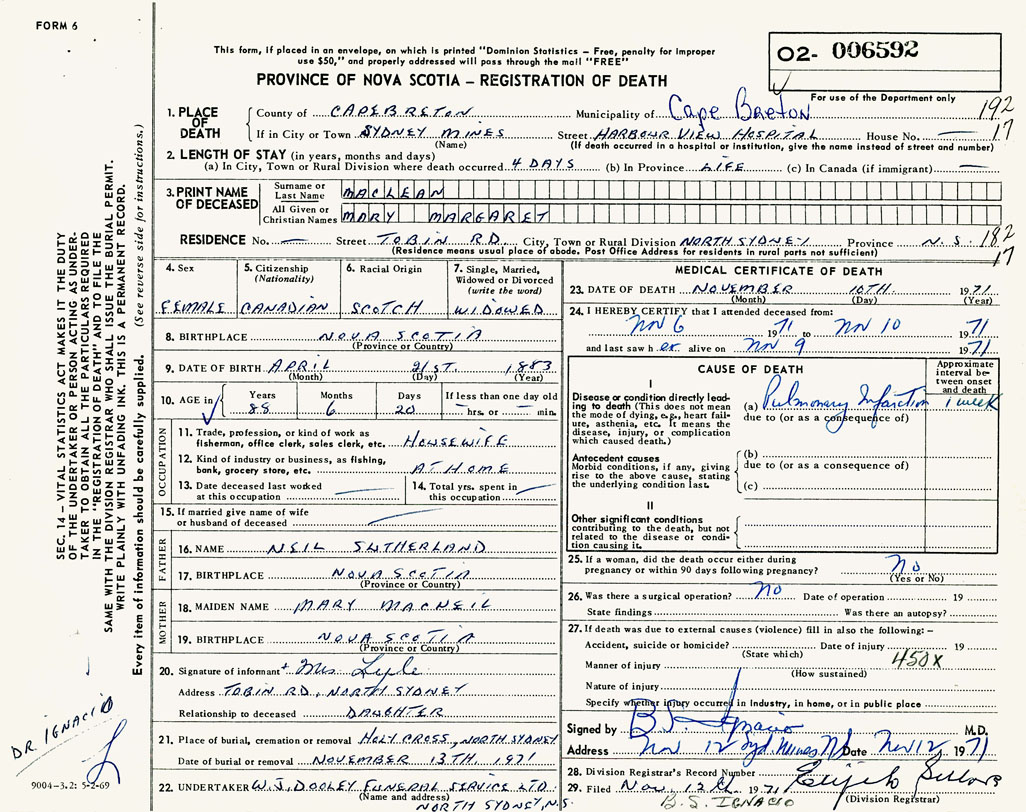 FORM 6
This form, if placed in an envelope, on which is printed "Dominion Statistics – Free, penalty for improper
use $50," and properly addressed will pass through the mail "FREE"
PROVINCE OF NOVA SCOTIA – REGISTRATION OF DEATH
O2- 006592
For use of the Department only
192
17
1. PLACE OF DEATH
County of CAPE BRETON Municipality of Cape Breton
If in City or Town SYDNEY MINES Street HARBOUR VIEW HOSPITAL House No. —
(Name) (If death occurred in a hospital or institution, give the name instead of street and number)
2. LENGTH OF STAY (in years, months and days)
(a) In City, Town or Rural Division where death occurred 4 DAYS (b) In Province LIFE (c) In Canada (if immigrant) —
3. PRINT NAME OF DECEASED
Surname or Last Name MACLEAN
All Given or Christian Names MARY MARGARET
RESIDENCE No. — Street TOBIN RD. City, Town or Rural Division NORTH SYDNEY Province N.S.
182
17
(Residence means usual place of abode. Post Office Address for residents in rural parts not sufficient)
4. Sex FEMALE
5. Citizenship (Nationality) CANADIAN
6. Racial Origin SCOTCH
7. Single, Married, Widowed or Divorced (write the word) WIDOWED
8. BIRTHPLACE NOVA SCOTIA
(Province or Country)
9. DATE OF BIRTH APRIL 21ST. 1883
(Month) (Day) (Year)
10. AGE in Years 88 Months 6 Days 20 If less than one day old — hrs. or — min.
OCCUPATION
11. Trade, profession, or kind of work as
fisherman, office clerk, sales clerk, etc. HOUSEWIFE
12. Kind of industry or business, as fishing,
bank, grocery store, etc. AT HOME
13. Date deceased last worked
at this occupation —
14. Total yrs. spent in
this occupation —
15. If married give name of wife
or husband of deceased —
FATHER
16. NAME NEIL SUTHERLAND
17. BIRTHPLACE NOVA SCOTIA
(Province or Country)
MOTHER
18. MAIDEN NAME MARY MACNEIL
19. BIRTHPLACE NOVA SCOTIA
(Province or Country)
20. Signature of informant + Mrs. Lyle
Address TOBIN RD, NORTH SYDNEY
Relationship to deceased DAUGHTER
21. Place of burial, cremation or removal HOLY CROSS, NORTH SYDNEY
Date of burial or removal NOVEMBER 13TH. 1971
22. UNDERTAKER W.J. DOOLEY FUNERAL SERVICE LTD.
(Name and address) NORTH SYDNEY, N.S.
MEDICAL CERTIFICATE OF DEATH
23. DATE OF DEATH NOVEMBER 10TH. 1971
(Month) (Day) (Year)
24. I HEREBY CERTIFY that I attended deceased from:
Nov 6 1971 to Nov 10 1971
and last saw h er alive on Nov 9 1971
CAUSE OF DEATH
Approximate interval be-
tween onset
and death
I
Disease or condition directly lead-
ing to death (This does not
mean the mode of dying, e.g., heart fail-
ure, asthenia, etc. It means the
disease, injury, or complication
which caused death.)
(a) Pulmonary Infarction 1 week
due to (or as a consequence of)
Antecedent causes
Morbid conditions, if any, giving
rise to the above cause, stating
the underlying condition last.
(b)
due to (or as a consequence of)
(c)
II
Other significant conditions
contributing to the death, but not
related to the disease or condi-
tion causing it.
25. If a woman, did the death occur either during
pregnancy or within 90 days following pregnancy? no
(Yes or No)
26. Was there a surgical operation? no Date of operation 19
State findings Was there an autopsy?
27. If death was due to external causes (violence) fill in also the following: –
Accident, suicide or homicide? Date of injury 19
(State which)
450X
Manner of injury
(How sustained)
Nature of injury
Specify whether injury occurred in industry, in home, or in public place
Signed by B.S. Ignacio M.D.
Address Nov 12 Syd. Mines NS Date Nov 12 1971
28. Division Registrar's Record Number
29. Filed Nov. 12 1971
(Division Registrar)
B.S. IGNACIO
SEC. 14 – VITAL STATISTICS ACT MAKES IT THE DUTY
OF THE UNDERTAKER OR PERSON ACTING AS UNDER-
TAKER TO OBTAIN ALL THE PARTICULARS REQUIRED
IN THE "REGISTRATION OF DEATH" AND TO FILE THE
SAME WITH THE DIVISION REGISTRAR WHO SHALL ISSUE THE BURIAL PERMIT.
WRITE PLAINLY WITH UNFADING INK. THIS IS A PERMANENT RECORD.
Every item of information should be carefully supplied. (See reverse side for instructions.)
DR IGNACIO
9004-3.2: 5-2-69